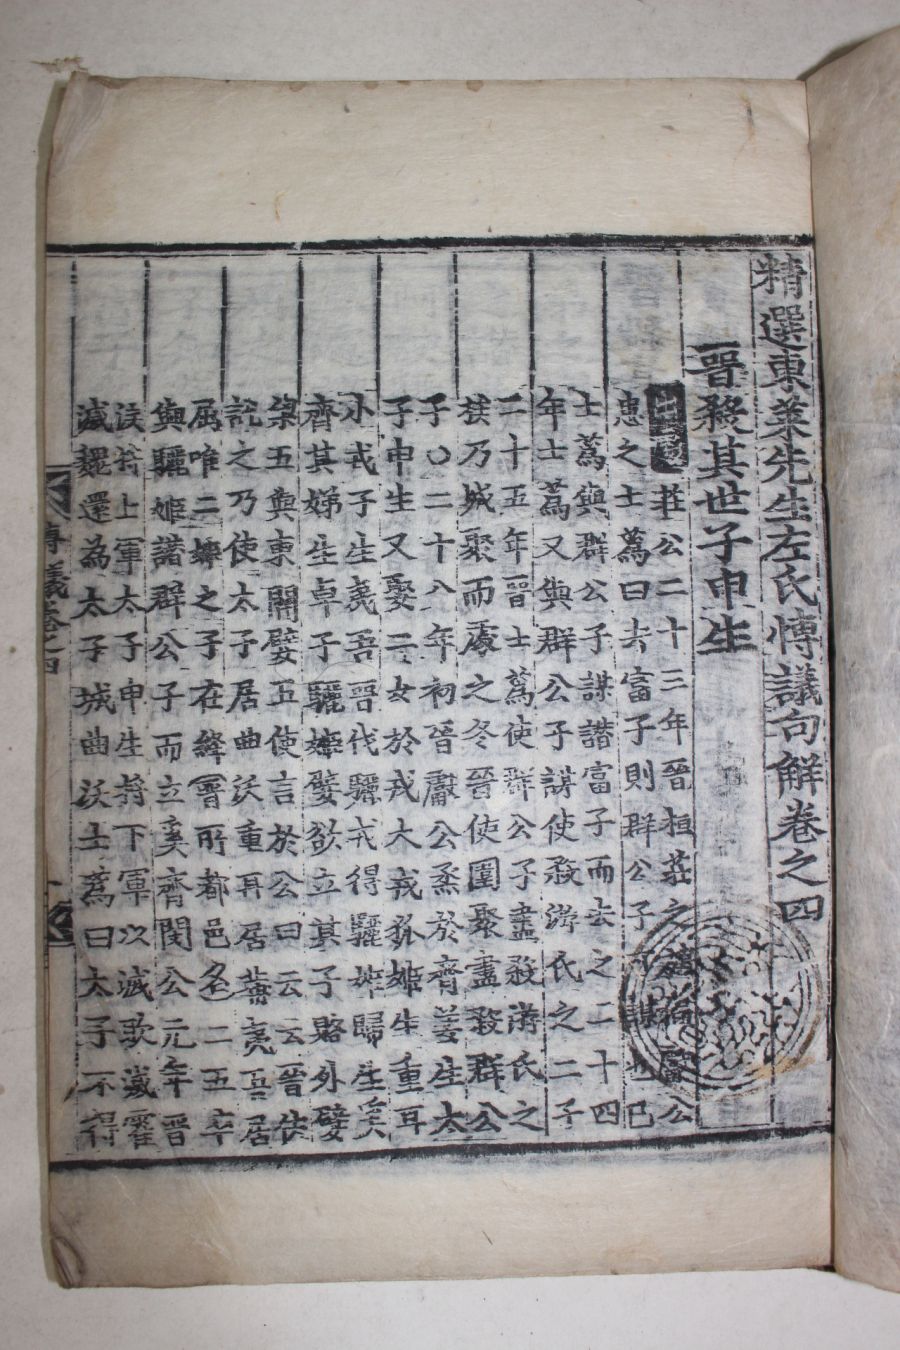 精選東萊先生左氏博議句解卷之四
晉殺其世子申生
出處 莊公二十三年晉桓莊之族偪獻公
患之士蒍曰去富子則群公子可謀也已
士蒍與群公子謀譖富子而去之二十四
年士蒍又與群公子謀使殺游氏之二子
二十五年晉士蒍使群公子盡殺游氏之
族乃城聚而處之冬晉使圍聚盡殺群公
子〇二十八年初晉獻公烝於齊姜生太
子申生又娶二女於戎大戎狐姬生重耳
小戎子生夷吾晉伐驪戎得驪姬歸生奚
齊其娣生卓子驪姬嬖欲立其子賂外嬖
梁五與東關嬖五使言於公曰云云晉侯
說之乃使太子居曲沃重耳居蒲夷吾居
屈唯二姬之子在絳晉所都邑名二五卒
與驪姬譖群公子而立奚齊閔公元年晉
侯將上軍太子申生將下軍以滅耿滅霍
滅魏還為太子城曲沃士蒍曰太子不得
博議卷之四 一